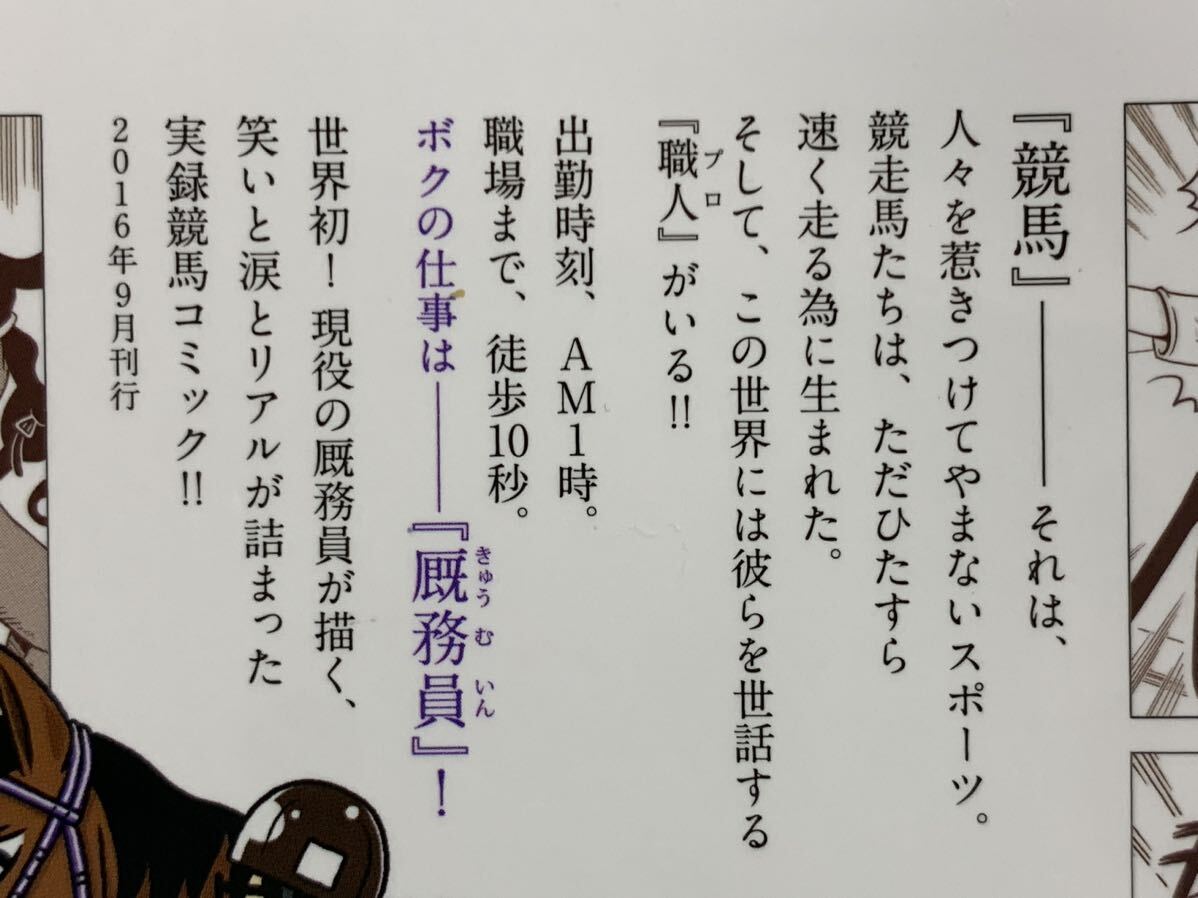 『競馬』――それは、
人々を惹きつけてやまないスポーツ。
競走馬たちは、ただひたすら
速く走る為に生まれた。
そして、この世界には彼らを世話する
『職人』がいる!!
プロ
出勤時刻、AM1時。
職場まで、徒歩10秒。
ボクの仕事は――『厩務員』!
きゅうむいん
世界初!現役の厩務員が描く、
笑いと涙とリアルが詰まった
実録競馬コミック!!
2016年9月刊行